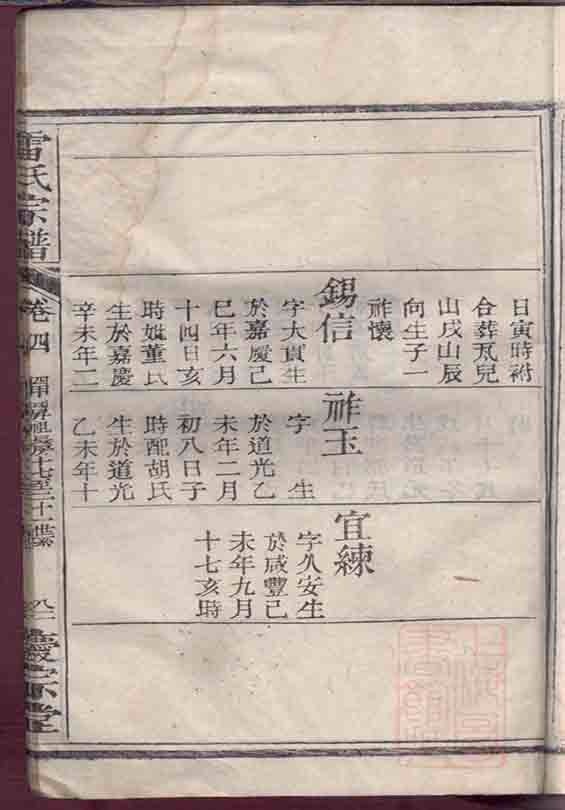 日寅時祔
合葬瓦兒
山戌山辰
向生子一
祚懷
錫信
字大賓生
於嘉慶己
巳年六月
十四日亥
時娶董氏
生於嘉慶
辛未年二
祚玉
字 生
於道光乙
未年二月
初八日子
時配胡氏
生於道光
乙未年十
宜練
字久安生
於咸豐己
未年九月
十七亥時
雷氏宗譜
卷四
世
慶
堂